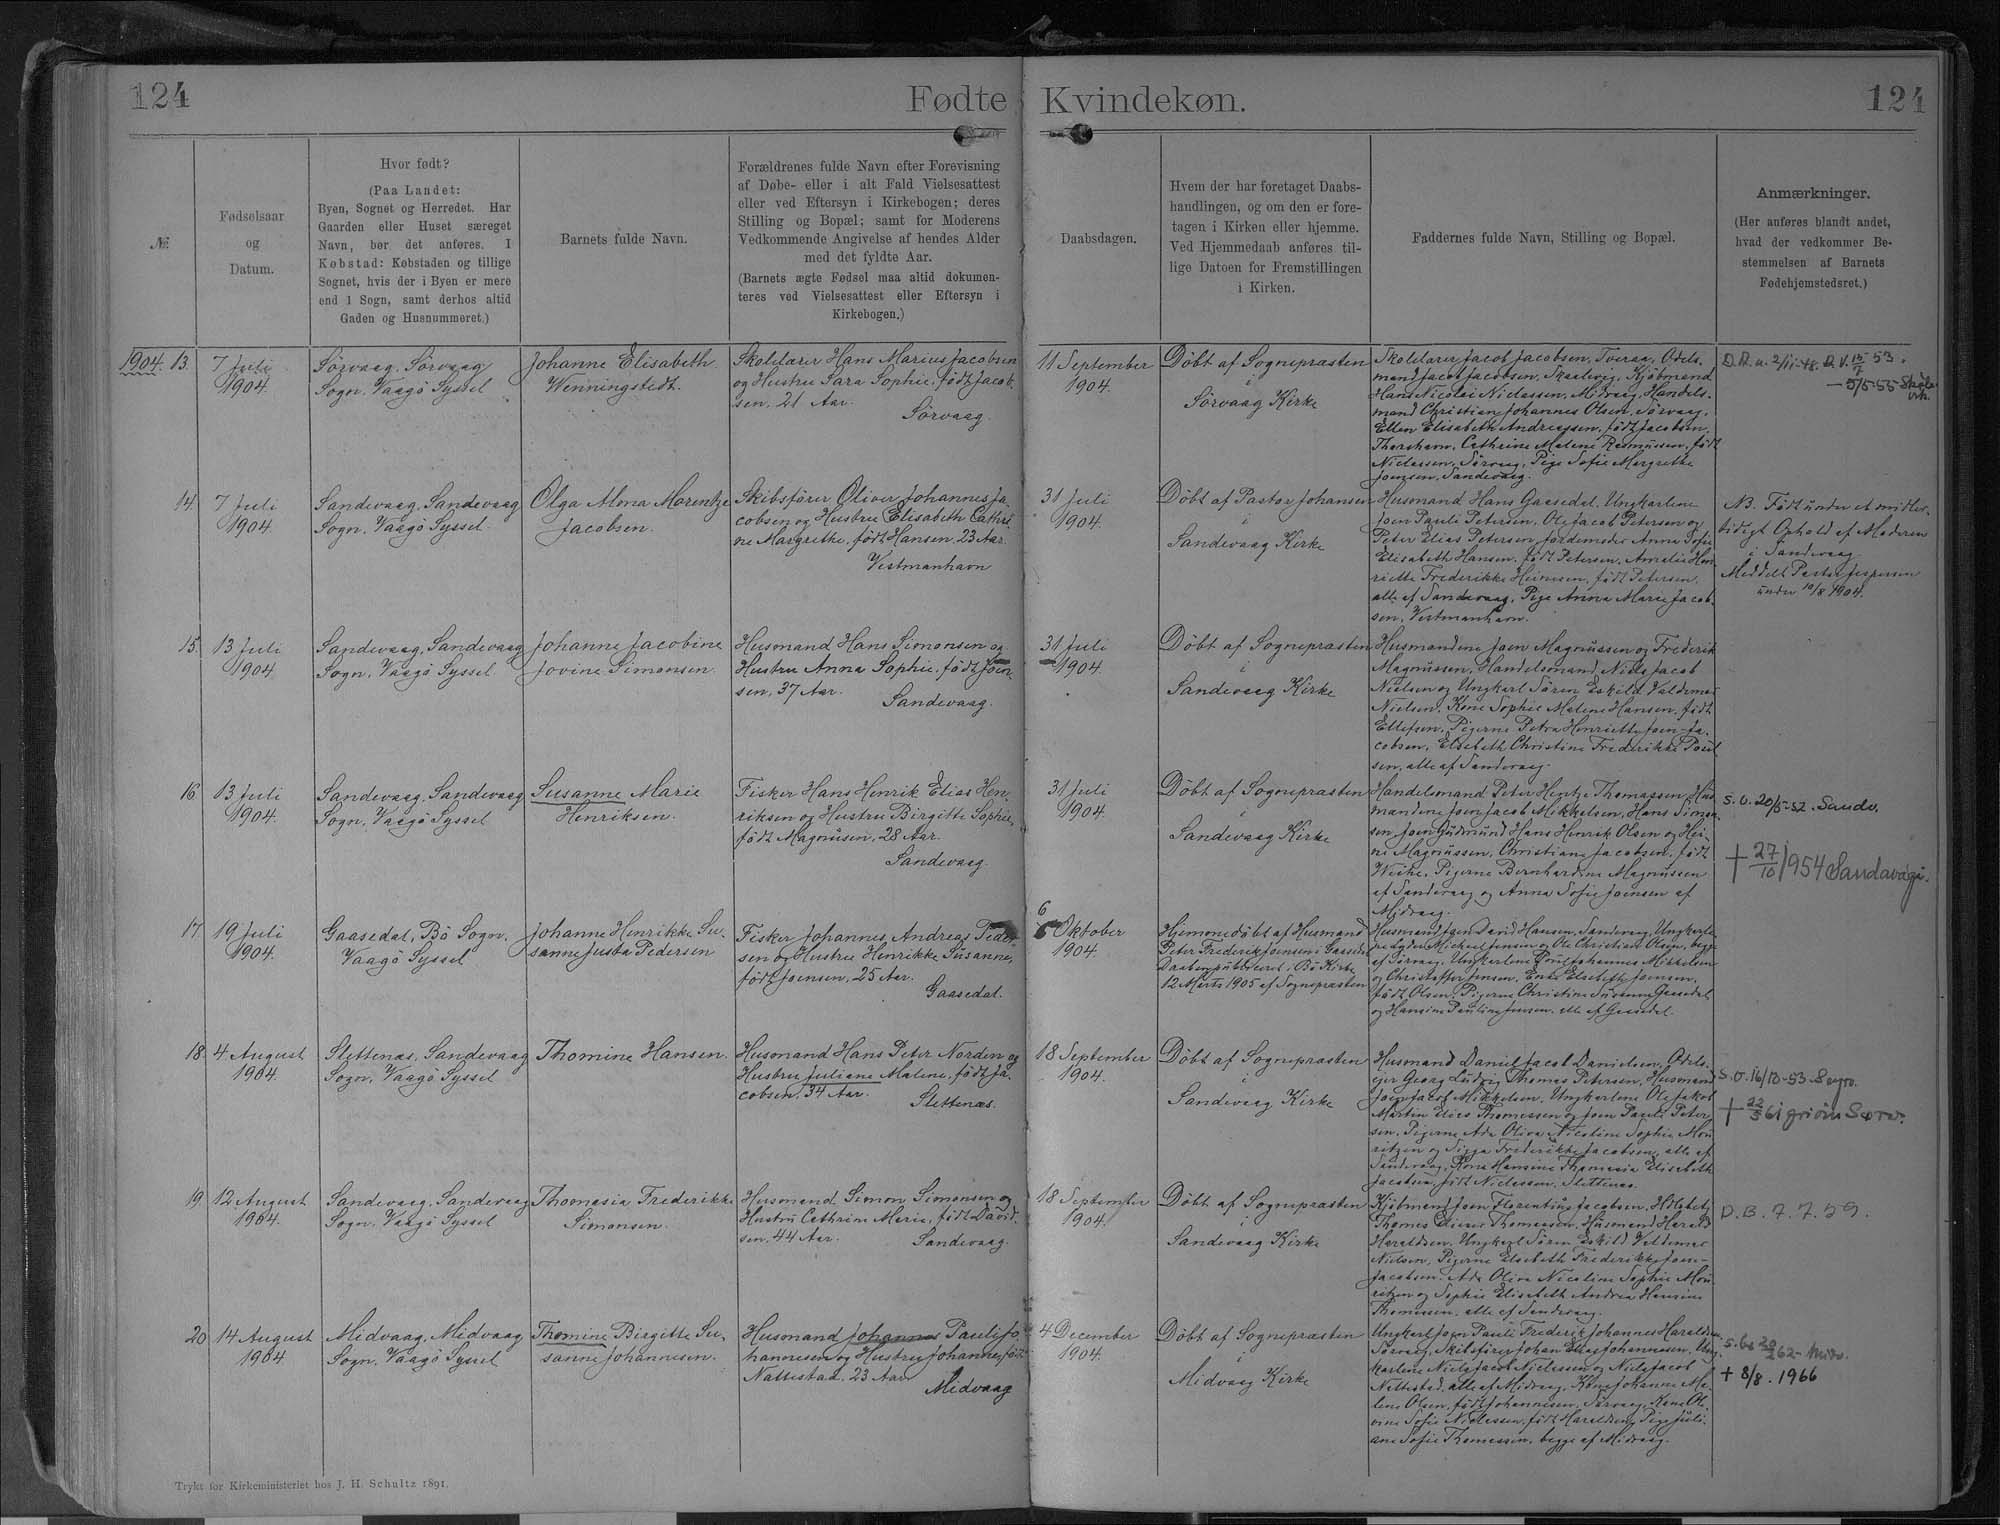 124
Fødte
Kvindekøn.
124
№
Fødselsaar
og
Datum.
Hvor født?
(Paa Landet:
Byen, Sognet og Herredet. Har
Gaarden eller Huset særeget
Navn, bør det anføres. I
Købstad: Købstaden og tillige
Sognet, hvis der i Byen er mere
end 1 Sogn, samt derhos altid
Gaden og Husnummeret.)
Barnets fulde Navn.
Forældrenes fulde Navn efter Forevisning
af Døbe- eller i alt Fald Vielsesattest
eller ved Eftersyn i Kirkebogen; deres
Stilling og Bopæl; samt for Moderens
Vedkommende Angivelse af hendes Alder
med det fyldte Aar.
(Barnets ægte Fødsel maa altid dokumen-
teres ved Vielsesattest eller Eftersyn i
Kirkebogen.)
Daabsdagen.
Hvem der har foretaget Daabs-
handlingen, og om den er fore-
tagen i Kirken eller hjemme.
Ved Hjemmedaab anføres til-
lige Datoen for Fremstillingen
i Kirken.
Faddernes fulde Navn, Stilling og Bopæl.
Anmærkninger.
(Her anføres blandt andet,
hvad der vedkommer Be-
stemmelsen af Barnets
Fødehjemstedsret.)
1904. 13.
7 Juli
1904.
Sörvaag, Sörvaag
Sogn, Vaagö Syssel
Johanne Elisabeth
Wenningstedt.
Skolelærer Hans Marius Jacobsen
og Hustru Sara Sophie, født Jacob-
sen. 21 Aar.
Sörvaag.
11 September
1904.
Döbt af Sognepræsten
i
Sörvaag Kirke
Skolelærer Jacob Jacobsen, Tveraa, Odels-
mand Jacob Jacobsen, Skaalevig, Kjöbmand
Hans Nicolai Niclassen, Midvaag, Handels-
mand Christian Johannes Olsen, Sörvaag,
Ellen Elisabeth Andreassen, født Jacobsen,
Thorshavn, Cathrine Malene Rasmussen, født
Niclassen, Sörvaag, Pige Sofie Margrethe
Joensen, Sandevaag.
D.A. u. 2/11-48. D.V. 15/7 53.
— 5/5-55
14.
7 Juli
1904.
Sandevaag, Sandevaag
Sogn, Vaagö Syssel.
Olga Alma Morentze
Jacobsen.
Skibsförer Oliver Johannes Ja-
cobsen og Hustru Elisabeth Cathri-
ne Margrethe, født Hansen, 23 Aar.
Vestmanhavn
31 Juli
1904.
Döbt af Pastor Johansen
i
Sandevaag Kirke
Husmand Hans Gaasedal, Ungkarlene
Joen Pauli Petersen, Ole Jacob Petersen og
Peter Elias Petersen, Jordemoder Anna Sofie
Elisabeth Hansen, født Petersen, Amalie Hen-
riette Frederikke Heinesen, født Petersen,
alle af Sandevaag, Pige Anna Marie Jacob-
sen, Vestmanhavn.
NB. Født under et midler-
tidigt Ophold af Moderen
i Sandevaag.
Meddelt Pastor Jespersen
under 10/8 1904.
15.
13 Juli
1904.
Sandevaag, Sandevaag
Sogn, Vaagö Syssel
Johanne Jacobine
Jovine Simonsen.
Husmand Hans Simonsen og
Hustru Anna Sophie, født Joen-
sen, 37 Aar.
Sandevaag.
31 Juli
1904.
Döbt af Sognepræsten
i
Sandevaag Kirke
Husmandene Joen Magnussen og Frederik
Magnussen, Handelsmand Niels Jacob
Nielsen og Ungkarl Sören Eskild Valdemar
Nielsen, Kone Sophie Malene Hansen, født
Ellefsen, Pigerne Petra Henriette Joen-Ja-
cobsen, Elsebeth Christine Frederikke Poul-
sen, alle af Sandevaag.
16.
13 Juli
1904.
Sandevaag, Sandevaag
Sogn, Vaagö Syssel
Susanne Marie
Henriksen.
Fisker Hans Henrik Elias Hen-
riksen og Hustru Birgitte Sophie,
født Magnusen, 28 Aar.
Sandevaag.
31 Juli
1904.
Döbt af Sognepræsten
i
Sandevaag Kirke
Handelsmand Peter Hentze Thomassen, Hus-
mandene Joen Jacob Mikkelsen, Hans Simon-
sen, Joen Gudmund Hans Henrik Olsen og Hei-
ne Magnussen, Christiane Jacobsen, født
Weihe, Pigerne Bernhardine Magnussen
af Sandevaag og Anna Sofie Joensen af
Midvaag.
S. U. 20/5-52. Sandv.
† 27/10 1954 Sandavági.
17.
19 Juli
1904.
Gaasedal, Bö Sogn,
Vaagö Syssel
Johanne Henrikke Su-
sanne Justa Pedersen
Fisker Johannes Andreas Peder-
sen og Hustru Henrikke Susanne,
født Joensen, 25 Aar.
Gaasedal.
6
Oktober
1904.
Hjemmedöbt af Husmand
Peter Frederik Joensen i Gaasedal
Daaben publiceret i Bö Kirke
12 Marts 1905 af Sognepræsten
Husmand Joen David Hansen, Sandevaag, Ungkarle-
ne Lyder Michael Jensen og Ole Christian Olsen, begge
af Sörvaag, Ungkarlene Poul Johannes Mikkelsen
og Christoffer Jensen, Enke Elsebeth Joensen,
født Olsen, Pigerne Christine Susanne Gaasedal
og Hansine Pauline Jensen, alle af Gaasedal.
18.
4 August
1904.
Slettenæs, Sandevaag
Sogn, Vaagö Syssel
Thomine Hansen.
Husmand Hans Peter Norden og
Hustru Juliane Malene, født Ja-
cobsen, 34 Aar.
Slettenæs.
18 September
1904.
Döbt af Sognepræsten
i
Sandevaag Kirke
Husmand Daniel Jacob Danielsen, Odels-
ejer Georg Ludvig Thomas Petersen, Husmand
Joen Jacob Mikkelsen, Ungkarlene Ole Jakob
Martin Elias Thomassen og Joen Pauli Peter-
sen, Pigerne Ada Oliva Nicoline Sophie Mou-
ritzen og Sigga Frederikke Jacobsen, alle af
Sandevaag, Kone Hansine Thomasia Elisabeth
Jacobsen, født Niclassen, Slettenæs.
S.U. 16/10-53
† 22/3 61
19.
12 August
1904.
Sandevaag, Sandevaag
Sogn, Vaagö Syssel
Thomasia Frederikke
Simonsen.
Husmand Simon Simonsen og
Hustru Cathrine Marie, født David-
sen, 44 Aar.
Sandevaag.
18 September
1904.
Döbt af Sognepræsten
i
Sandevaag Kirke
Kjöbmand Joen Florentius Jacobsen,
Thomas Thomassen, Husmand Harald
Haraldsen, Ungkarl Sören Eskild Valdemar
Nielsen, Pigerne Elsebeth Frederikke Joen-
Jacobsen, Ada Oliva Nicoline Sophie Mou-
ritzen og Sophie Elisabeth Andrea Hansine
Thomassen, alle af Sandevaag.
D.B. 7.7.59.
20
14 August
1904
Midvaag, Midvaag
Sogn, Vaagö Syssel
Thomine Birgitte Su-
sanne Johannesen.
Husmand Johannes Pauli Jo-
hannesen og Hustru Johanne, født
Nattestad, 23 Aar
Midvaag
4 December
1904.
Döbt af Sognepræsten
i
Midvaag Kirke
Ungkarl Joen Pauli Frederik Johannes Haraldsen,
Sörvaag, Skibsförer Johan Elias Johannesen, Ung-
karlene Niels Jacob Niclassen og Niels Jacob
Nattestad, alle af Midvaag, Kone Johanne Ma-
lene Olsen, født Johannesen, Sörvaag, Kone Ol-
vine Sofie Niclassen, født Haraldsen, Pige Juli-
ane Sofie Thomassen, begge af Midvaag.
† 8/8. 1966
Trykt for Kirkeministeriet hos J. H. Schultz 1891.